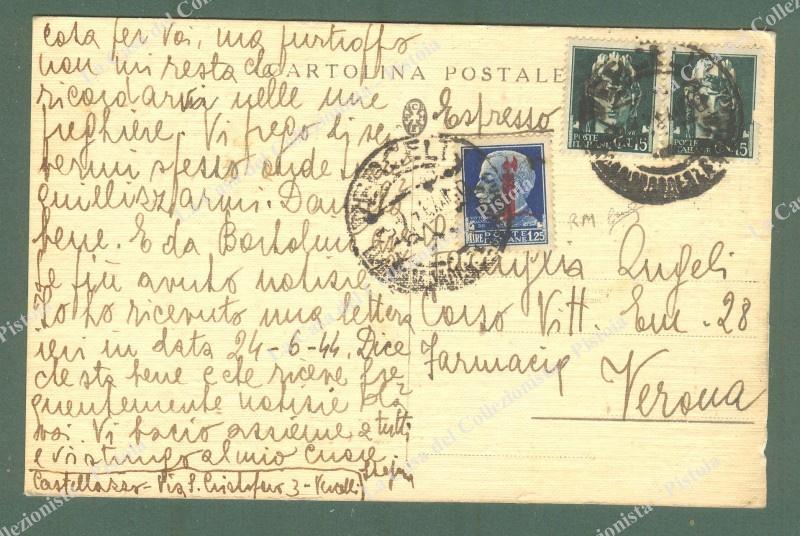 cosa per voi, ma purtroppo
non mi resta che
ricordarvi nelle mie
preghiere. Vi prego di
spesso onde
bene. E da Bortolino
più avuto notizie
Io ho ricevuto una lettera
ieri in data 24-6-44. Dice
che sta bene e che riceve fre-
quentemente notizie da
voi. Vi bacio assieme a tutti
e vi stringo al mio cuore
Castellazzo - Via S. Cristoforo 3 - Vercelli
CARTOLINA POSTALE
Espresso
POSTE ITALIANE C. 15
POSTE ITALIANE C. 15
LIRE POSTE ITALIANE 1.25
RM
Famiglia Angeli
Corso Vitt. Em. 28
Farmacia
Verona
La Casa del Collezionista - Pistoia